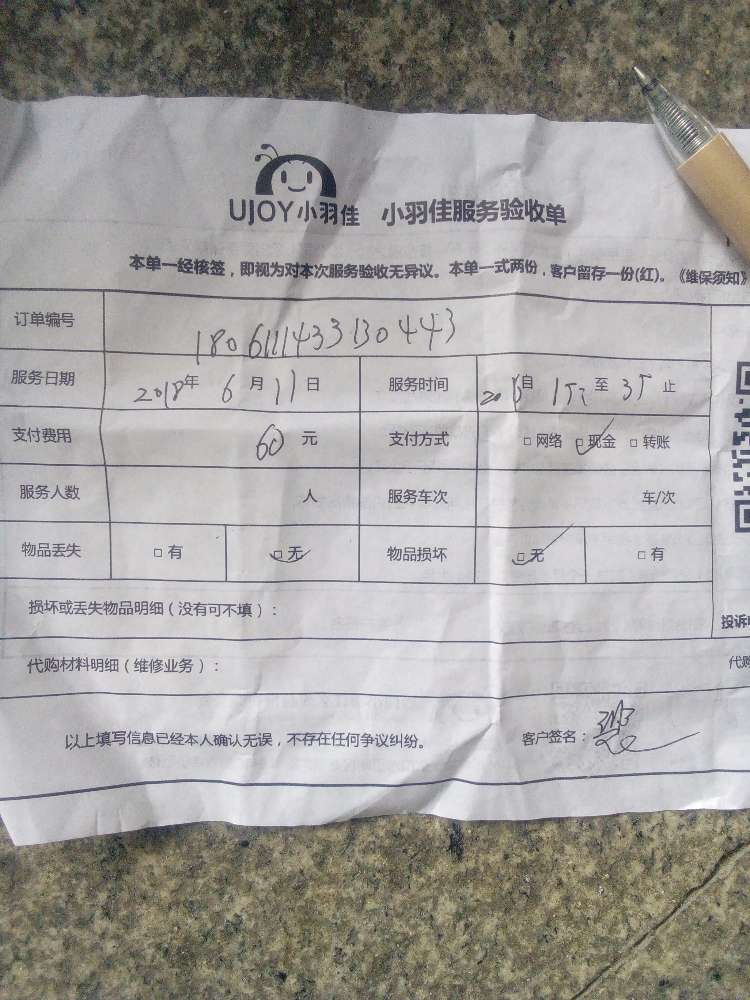 UJOY小羽佳 小羽佳服务验收单
本单一经核签，即视为对本次服务验收无异议。本单一式两份，客户留存一份(红)。《维保须知》
订单编号 180611143313044​3
服务日期 2018年 6月 11日 服务时间 自 至 止
支付费用 60元 支付方式 □网络 □现金 □转账
服务人数 人 服务车次 车/次
物品丢失 □有 □无 物品损坏 □无 □有
损坏或丢失物品明细（没有可不填）：
投诉
代购材料明细（维修业务）：
代购
以上填写信息已经本人确认无误，不存在任何争议纠纷。 客户签名：